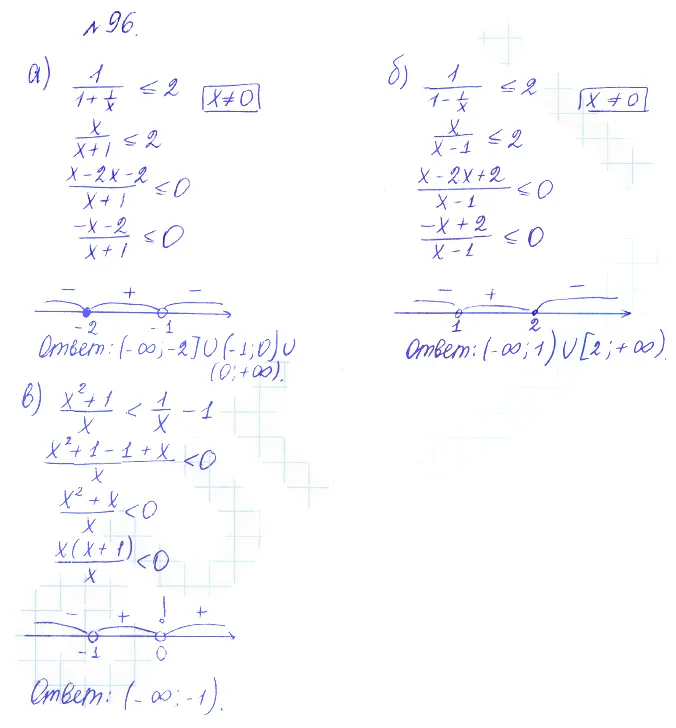 №96.
а) 1/(1+1/x) ≤ 2 x≠0
x/(x+1) ≤ 2
(x-2x-2)/(x+1) ≤ 0
(-x-2)/(x+1) ≤ 0
- + -
-2 -1
Ответ: (-∞;-2]∪(-1;0)∪
(0;+∞).
б) 1/(1-1/x) ≤ 2 x≠0
x/(x-1) ≤ 2
(x-2x+2)/(x-1) ≤ 0
(-x+2)/(x-1) ≤ 0
- + -
1 2
Ответ: (-∞;1)∪[2;+∞).
в) (x²+1)/x < 1/x - 1
(x²+1-1+x)/x < 0
(x²+x)/x < 0
x(x+1)/x < 0
- + ! +
-1 0
Ответ: (-∞;-1).